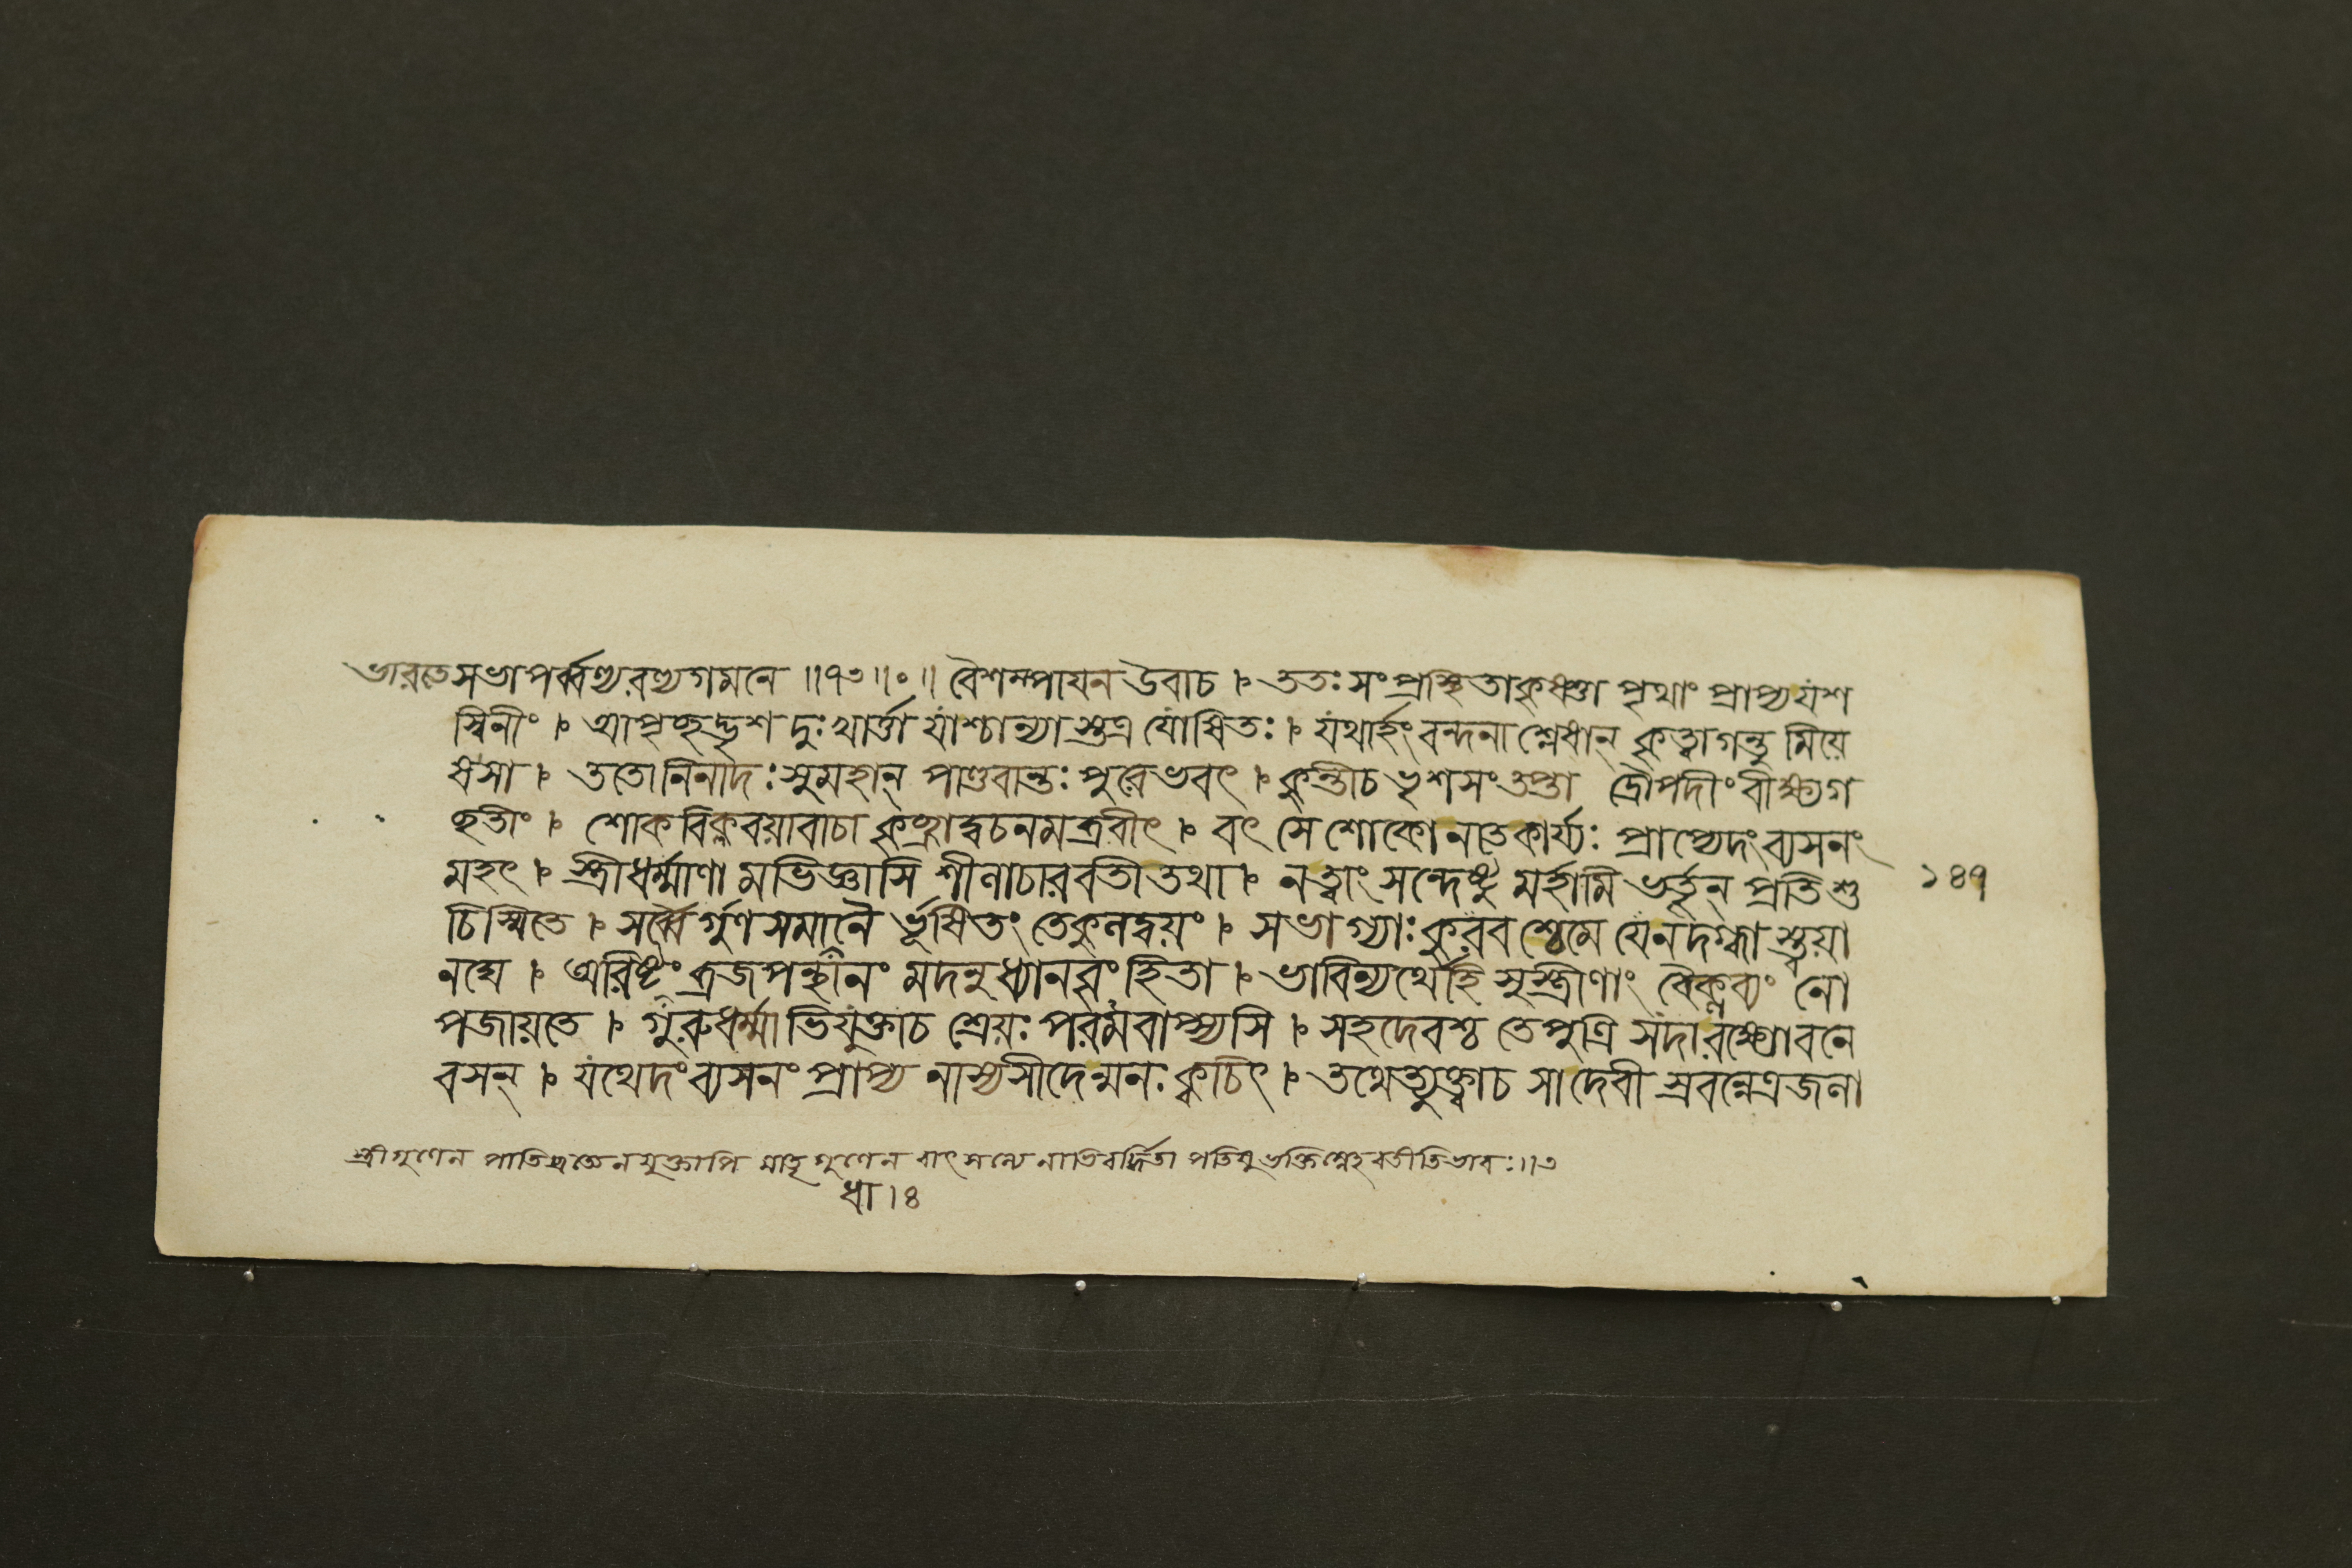 ভারতে সভাপর্ব্বণ্যরণ্যগমনে ॥৭৩॥০॥ বৈশম্পায়ন উবাচ । ততঃ সংপ্রস্থিতাকৃষ্ণা পৃথাং প্রাপ্য যশ
স্বিনীং । আপৃচ্ছদ্ভৃশ দুঃখার্ত্তা যাশ্চান্যাস্তত্র যোষিতঃ । যথার্হং বন্দনাশ্লেষান্ কৃত্বাগন্তু মিয়ে
ষসা । ততোনিনাদঃ সুমহান্ পাণ্ডবান্তঃ পুরেভবৎ । কুন্তীচ ভৃশসংতপ্তা দ্রৌপদীং বীক্ষ্যগ
চ্ছতীং । শোকবিক্লবয়াবাচা কৃচ্ছ্রাদ্বচনমব্রবীৎ । বৎসে শোকোনাতকার্য্যঃ প্রাপ্যেদং ব্যসনং
মহৎ । স্ত্রীধর্ম্মাণা মভিজ্ঞাসি শীলাচারবতীতথা । নত্বাং সন্দেষ্টু মর্হামি ভর্তৃন্ প্রতিশু
১৪৭
চিস্মিতে । সর্ব্বৈর্গুণসমানৈ র্ভূষিতং তেকুলদ্বয়ং । সভাগ্যাঃ কুরব শ্চেমে যেনদগ্ধাস্ত্বয়া
নঘে । অরিষ্টং ব্রজপন্থানং মদনুধ্যানবৃংহিতা । ভাবিন্যর্থেহি সুস্ত্রীণাং বৈক্লব্যং নো
পজায়তে । গুরুধর্ম্মাভিযুক্তাচ শ্রেয়ঃ পরমবাপ্স্যসি । সহদেবশ্চ তেপুত্রি সদারক্ষ্যোবনে
বসন্ । যথেদং ব্যসনং প্রাপ্য নাস্যসীদেন্মনঃ ক্বচিৎ । তথেত্যুক্ত্বাচ সাদেবী স্রবন্নেত্রজলা
স্ত্রীগুণেন পাতিব্রত্যেনযুক্তাপি মাতৃগুণেন বাৎসল্যেনাভিবর্দ্ধিতা পতিষুভক্তিস্নেহবতীতিভাবঃ॥৩
ধা।৪